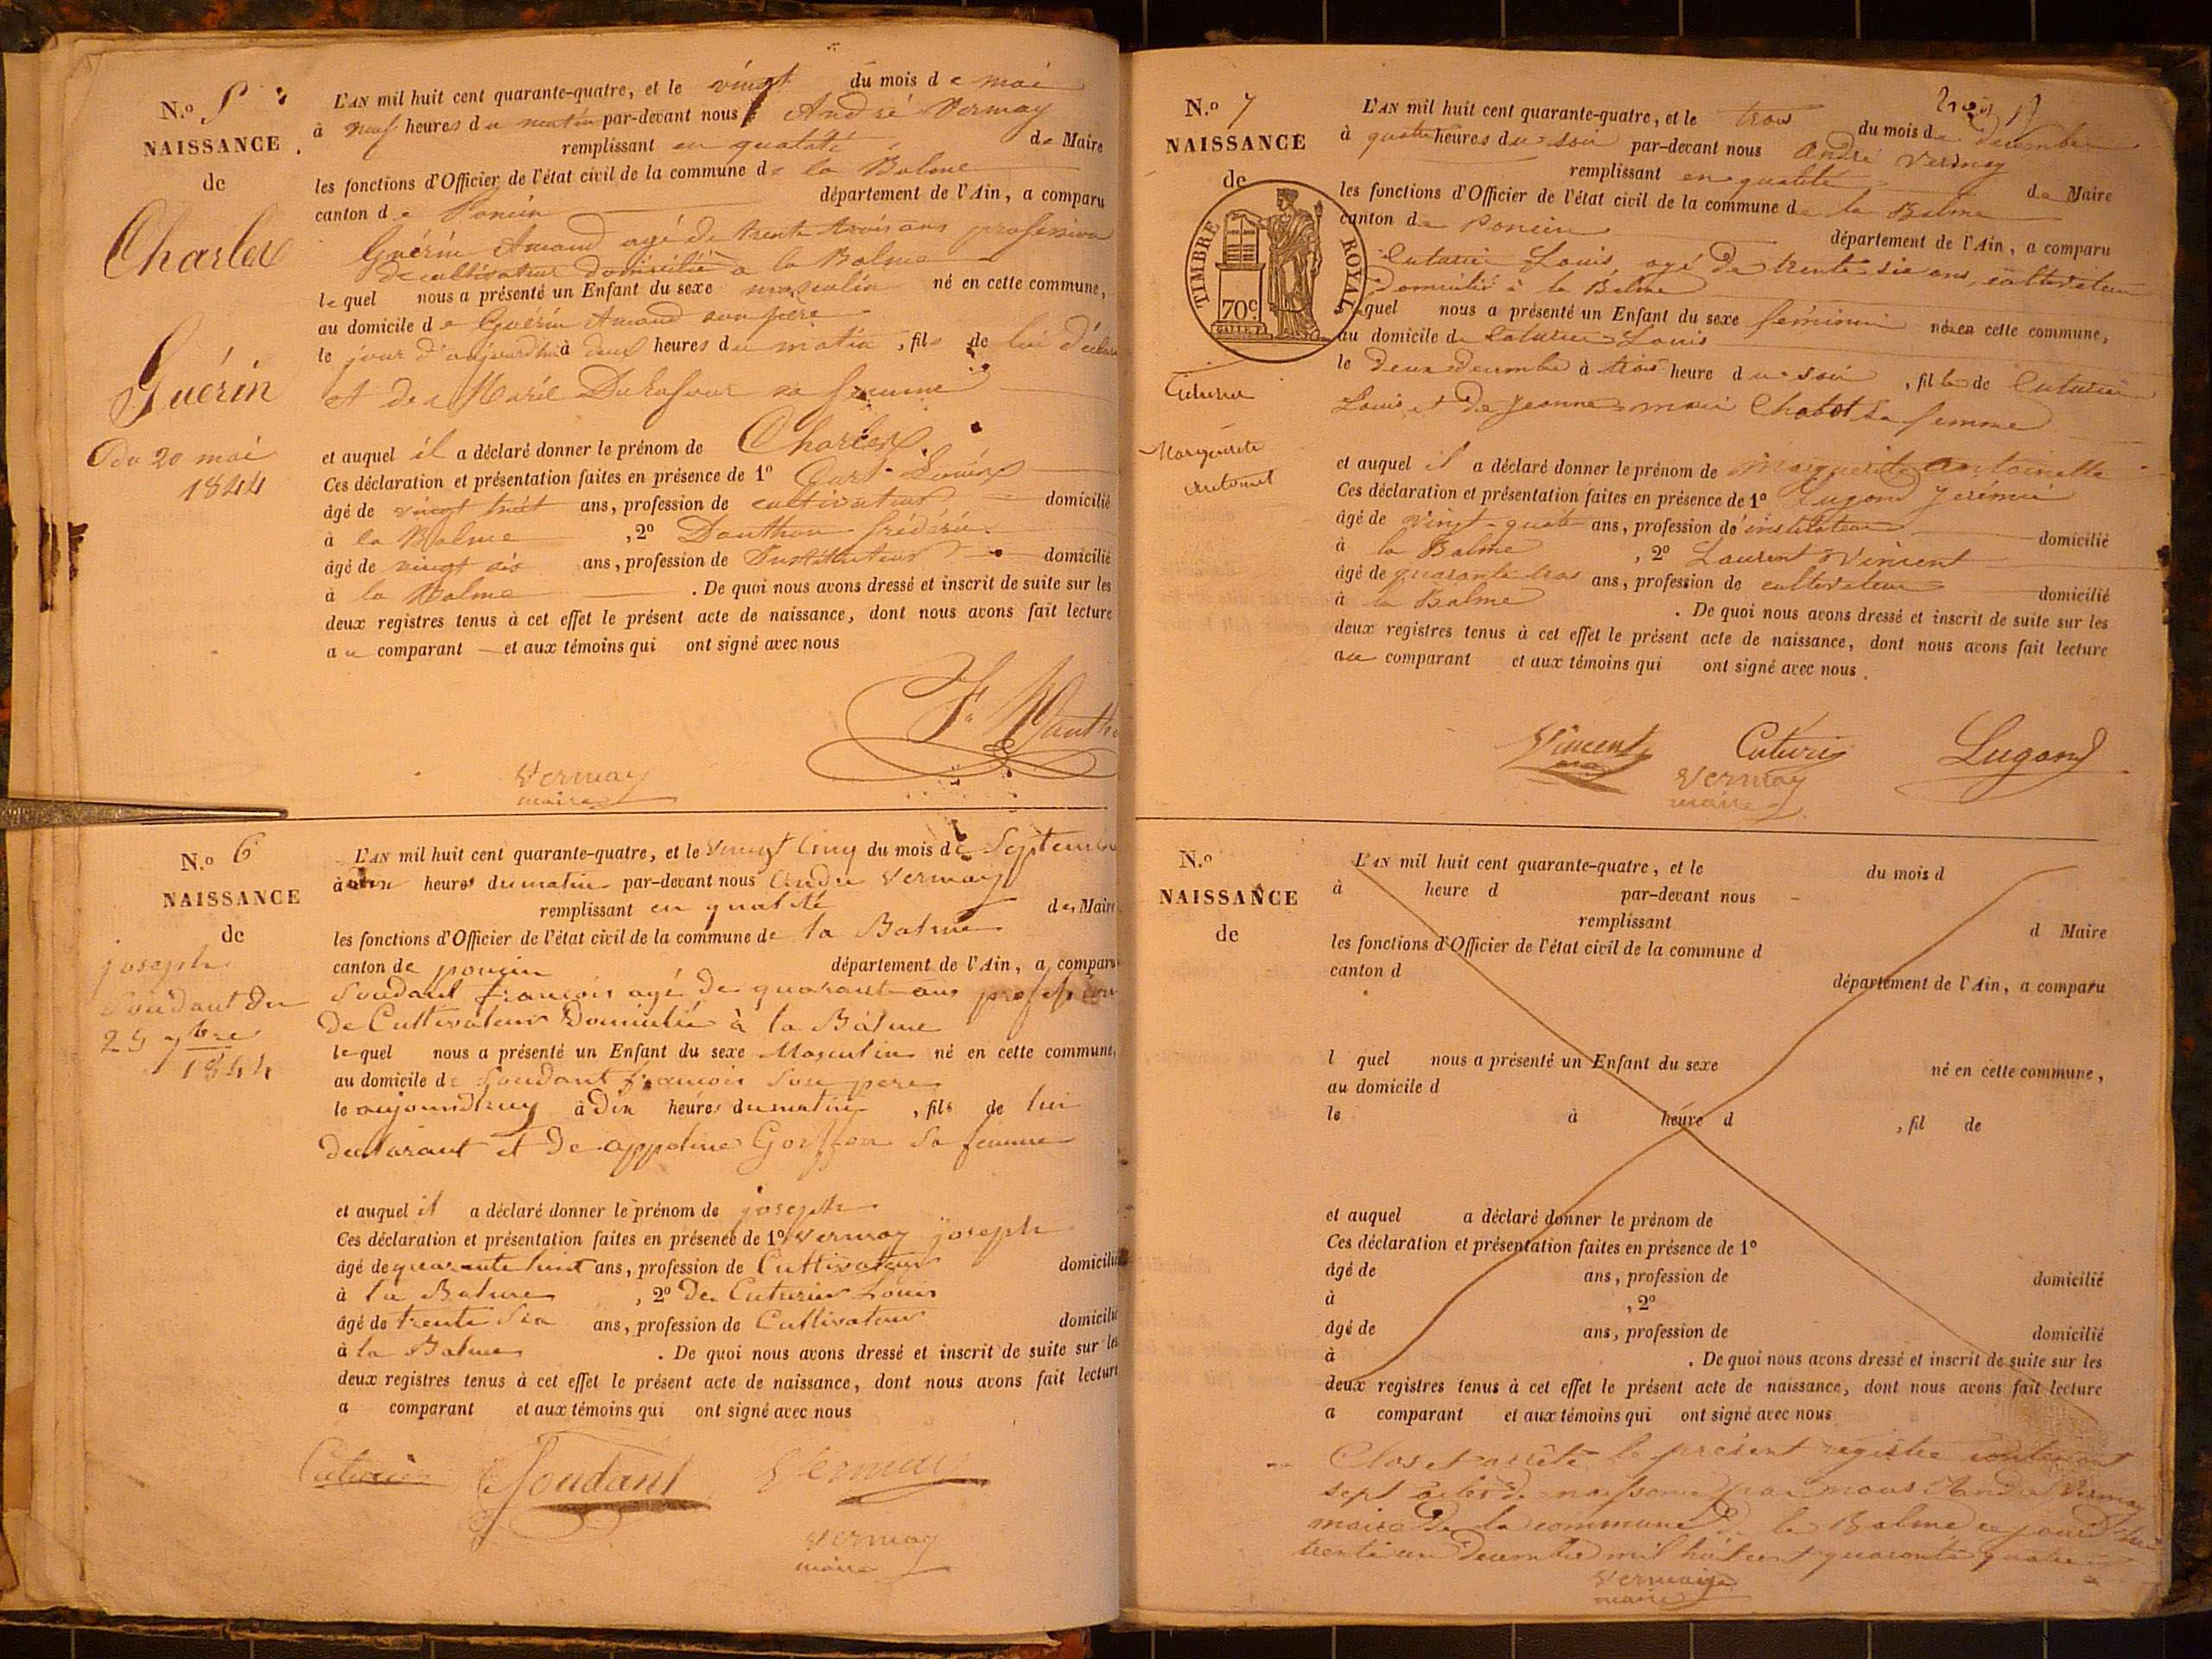 N.o 5
NAISSANCE
de
Charles
Guérin
Du 20 mai
1844
L'AN mil huit cent quarante-quatre, et le vingt du mois de mai
à neuf heures du matin par-devant nous André Vermay
remplissant en qualité de Maire
les fonctions d'Officier de l'état civil de la commune de la Balme
canton de Poncin département de l'Ain, a comparu
Guérin Amand agé de trente trois ans profession
de cultivateur domicilié à la Balme
lequel nous a présenté un Enfant du sexe masculin né en cette commune,
au domicile de Guérin Amand son père
le jour d'aujourdhui à deux heures du matin, fils de lui
et de Marie sa femme
et auquel il a déclaré donner le prénom de Charles
Ces déclaration et présentation faites en présence de 1º
âgé de vingt huit ans, profession de cultivateur domicilié
à la Balme, 2º Dauthon frédéric
âgé de vingt six ans, profession de Instituteur domicilié
à la Balme. De quoi nous avons dressé et inscrit de suite sur les
deux registres tenus à cet effet le présent acte de naissance, dont nous avons fait lecture
au comparant et aux témoins qui ont signé avec nous
Vermay
maire
N.o 6
NAISSANCE
de
joseph
Soudant du
25 7bre
1844
L'AN mil huit cent quarante-quatre, et le Vingt Cinq du mois de Septembre
à heures du matin par-devant nous André Vermay
remplissant en qualité de Maire
les fonctions d'Officier de l'état civil de la commune de la Balme
canton de poncin département de l'Ain, a comparu
Soudant françois agé de quarante ans profession
de Cultivateur Domicilié à la Balme
lequel nous a présenté un Enfant du sexe Masculin né en cette commune,
au domicile de Soudant françois Son pere
le aujourdhuy à Dix heures du matin, fils de lui
declarant et de appoline Sa femme
et auquel il a déclaré donner le prénom de joseph
Ces déclaration et présentation faites en présence de 1º Vermay joseph
âgé de quarante huit ans, profession de Cultivateur domicilié
à la Balme, 2º De Cuturier Louis
âgé de trente Six ans, profession de Cultivateur domicilié
à la Balme. De quoi nous avons dressé et inscrit de suite sur les
deux registres tenus à cet effet le présent acte de naissance, dont nous avons fait lecture
a comparant et aux témoins qui ont signé avec nous
Cuturier Soudant Vermay
Vermay
maire
N.o 7
NAISSANCE
de
TIMBRE ROYAL
70c
Cuturier
Marguerite
L'AN mil huit cent quarante-quatre, et le trois du mois de decembre
à quatre heures du soir par-devant nous André Vermay
remplissant en qualité de Maire
les fonctions d'Officier de l'état civil de la commune de la Balme
canton de Poncin département de l'Ain, a comparu
Cuturier Louis, agé de trente six ans, cultivateur
Domicilié à la Balme
lequel nous a présenté un Enfant du sexe féminin né en cette commune,
au domicile de Cuturier Louis
le Deux decembre à trois heure du soir, fille de Cuturier
Louis et de Jeanne marie Chabot Sa femme
et auquel il a déclaré donner le prénom de Marguerite Antoinette
Ces déclaration et présentation faites en présence de 1º Lugand Jérémie
âgé de vingt-quatre ans, profession de instituteur domicilié
à la Balme, 2º Laurent Vincent
âgé de quarante trois ans, profession de cultivateur domicilié
à la Balme. De quoi nous avons dressé et inscrit de suite sur les
deux registres tenus à cet effet le présent acte de naissance, dont nous avons fait lecture
au comparant et aux témoins qui ont signé avec nous.
Vincent Cuturier Lugand
Vermay
maire
N.o
NAISSANCE
de
L'AN mil huit cent quarante-quatre, et le du mois d
à heure d par-devant nous
remplissant d Maire
les fonctions d'Officier de l'état civil de la commune d
canton d département de l'Ain, a comparu
l quel nous a présenté un Enfant du sexe né en cette commune,
au domicile d
le à heure d, fil de
et auquel a déclaré donner le prénom de
Ces déclaration et présentation faites en présence de 1º
âgé de ans, profession de domicilié
à, 2º
âgé de ans, profession de domicilié
à. De quoi nous avons dressé et inscrit de suite sur les
deux registres tenus à cet effet le présent acte de naissance, dont nous avons fait lecture
a comparant et aux témoins qui ont signé avec nous
Clos et arrêté le présent registre contenant
sept actes de naissance par nous André Vermay
maire de la commune de la Balme ce jourd'hui
trente un Decembre mil huit cent quarante quatre
Vermay
maire